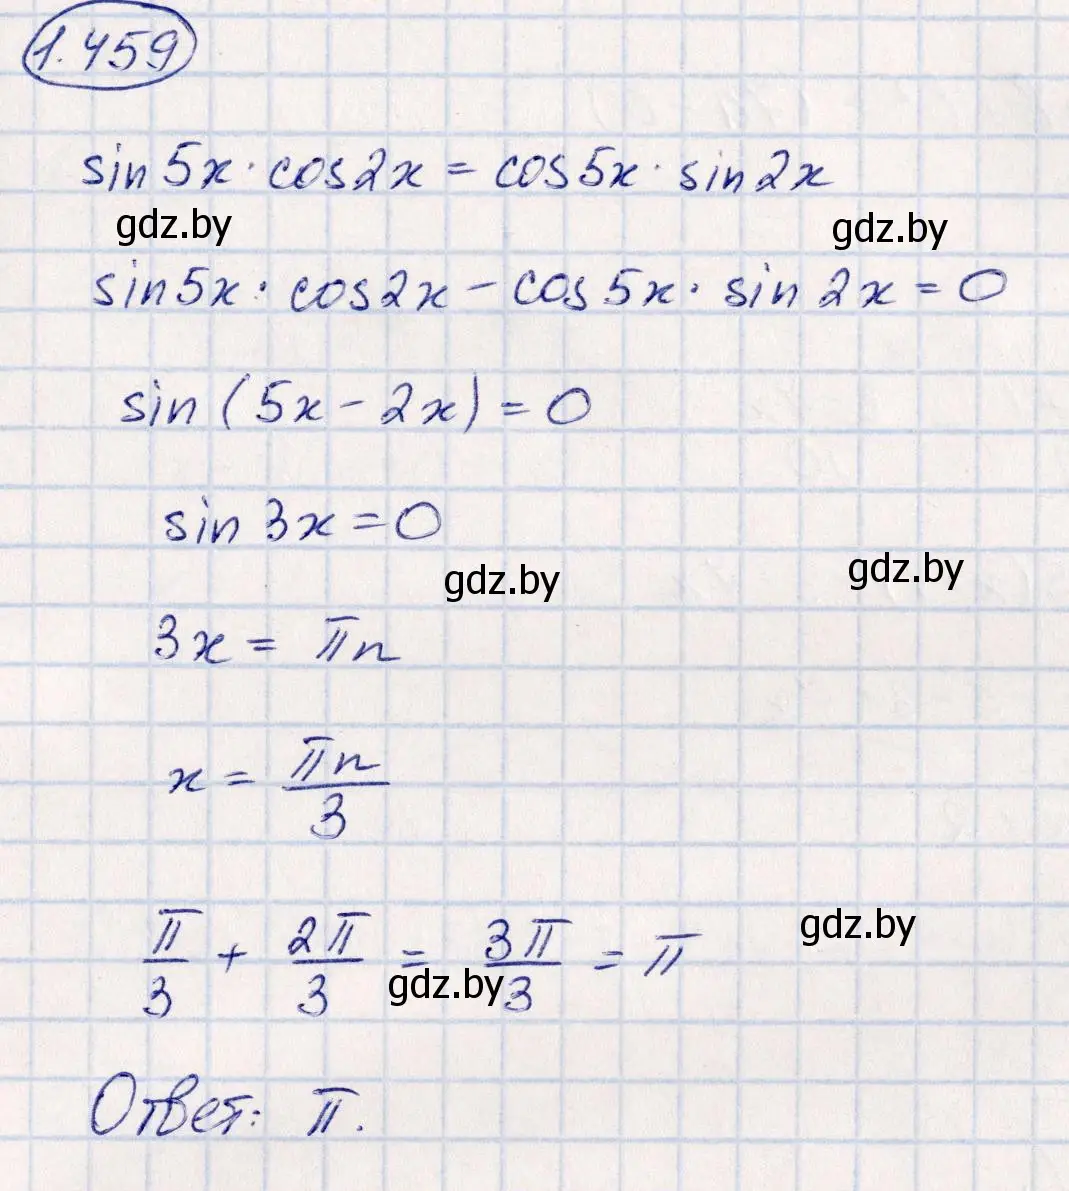 1.459
sin 5x · cos 2x = cos 5x · sin 2x
gdz.by gdz.by
sin 5x · cos 2x − cos 5x · sin 2x = 0
sin (5x − 2x) = 0
sin 3x = 0
gdz.by gdz.by
3x = πn
x = πn/3
π/3 + 2π/3 = 3π/3 = π
gdz.by gdz.by
Ответ: π.